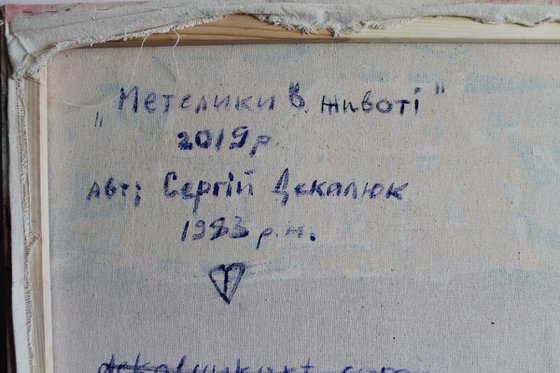 „Метелики в животі"
2019 р.
Авт; Сергій Декалюк
1983 р.н.